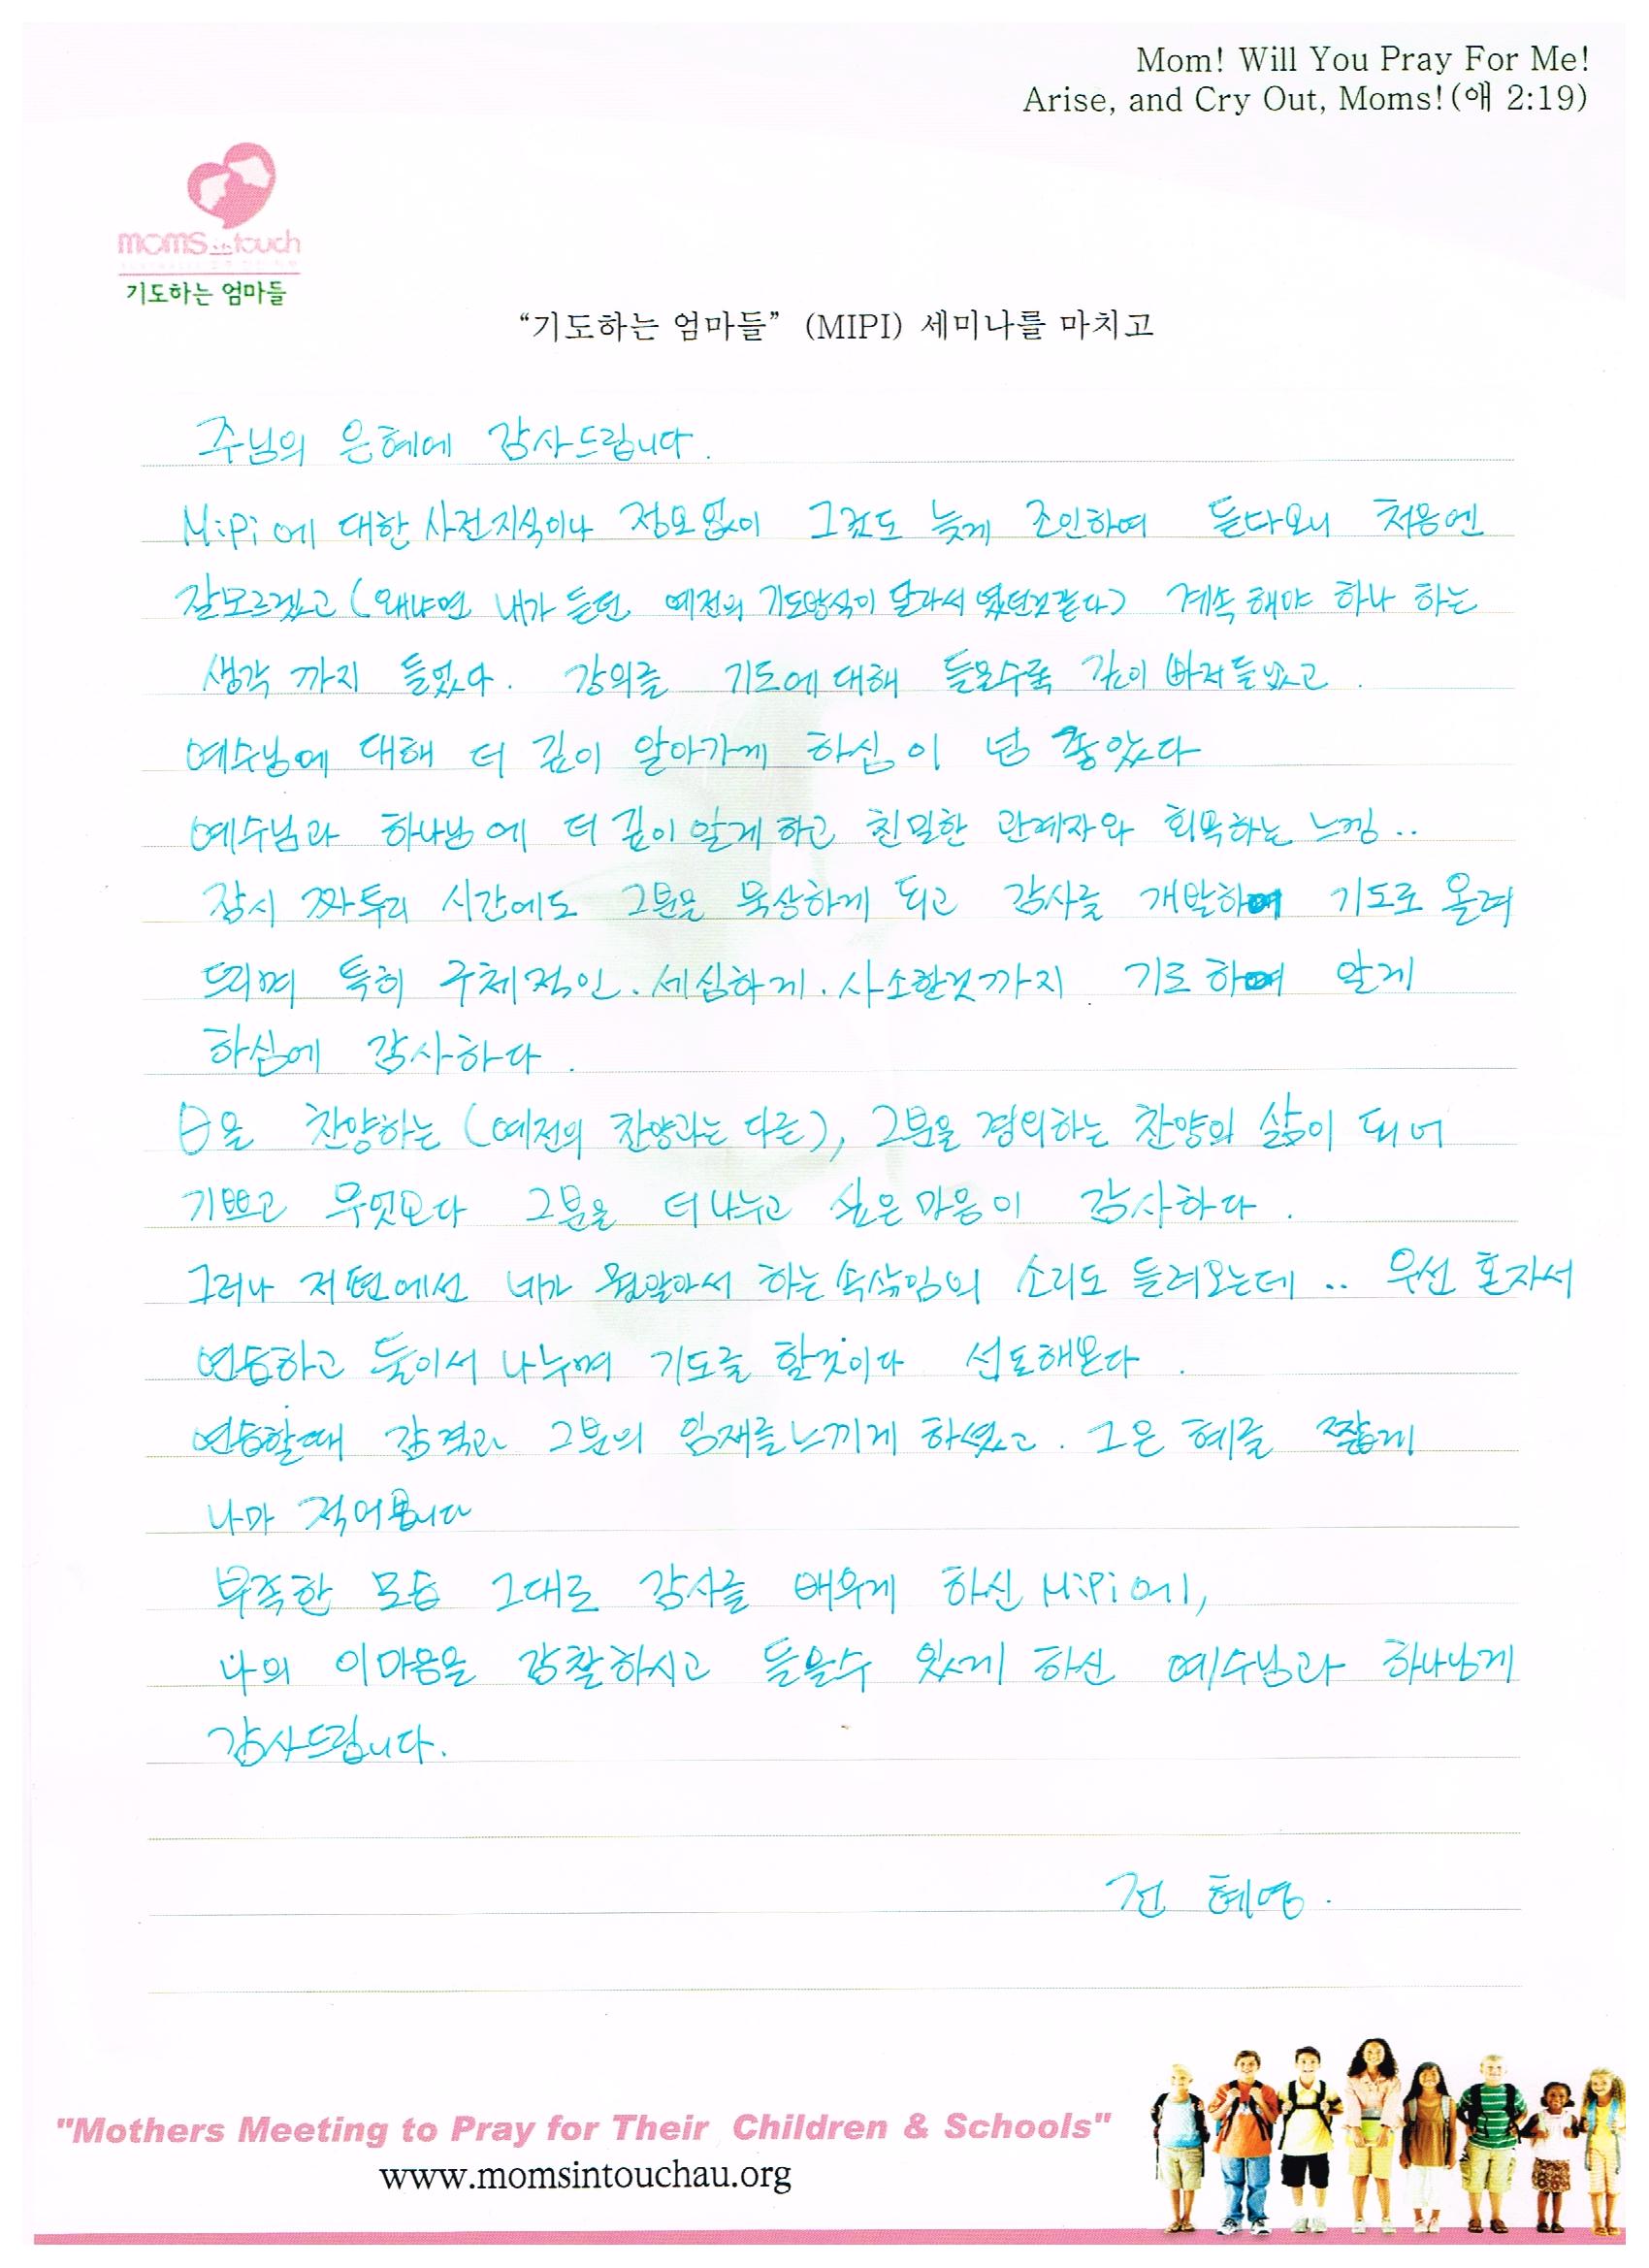 Mom! Will You Pray For Me!
Arise, and Cry Out, Moms!(애 2:19)
moms in touch
기도하는 엄마들
“기도하는 엄마들” (MIPI) 세미나를 마치고
주님의 은혜에 감사드립니다.
MiPi에 대한 사전지식이나 정보없이 그것도 늦게 조인하여 듣다보니 처음엔
잘모르겠고 (왜냐면 내가 듣던 예전의 기도방식이 달라서 였던것같다) 계속 해야 하나 하는
생각 까지 들었다. 강의를 기도에 대해 들을수록 깊이 빠져들었고.
예수님에 대해 더 깊이 알아가게 하심이 넘 좋았다
예수님과 하나님에 더 깊이 알게하고 친밀한 관계자와 회복하는 느낌..
잠시 짜투리 시간에도 그분을 묵상하게 되고 감사를 개발하여 기도로 올려
드리며 특히 구체적인. 세심하게. 사소한것까지 기도하여 알게
하심에 감사하다.
을 찬양하는 (예전의 찬양과는 다른), 그분을 경외하는 찬양의 삶이 되어
기쁘고 무엇보다 그분을 더 나누고 싶은 마음이 감사하다.
그러나 저편에선 네가 뭘알아서 하는 속삭임의 소리도 들려오는데.. 우선 혼자서
연습하고 둘이서 나누며 기도를 할것이다 선포해본다.
연습할때 감격과 그분의 임재를 느끼게 하셨고. 그은혜를 짧게
나마 적어봅니다
부족한 모습 그대로 감사를 배우게 하신 MiPi에,
나의 이마음을 감찰하시고 들을수 있게 하신 예수님과 하나님께
감사드립니다.
전 혜영.
"Mothers Meeting to Pray for Their Children & Schools"
www.momsintouchau.org